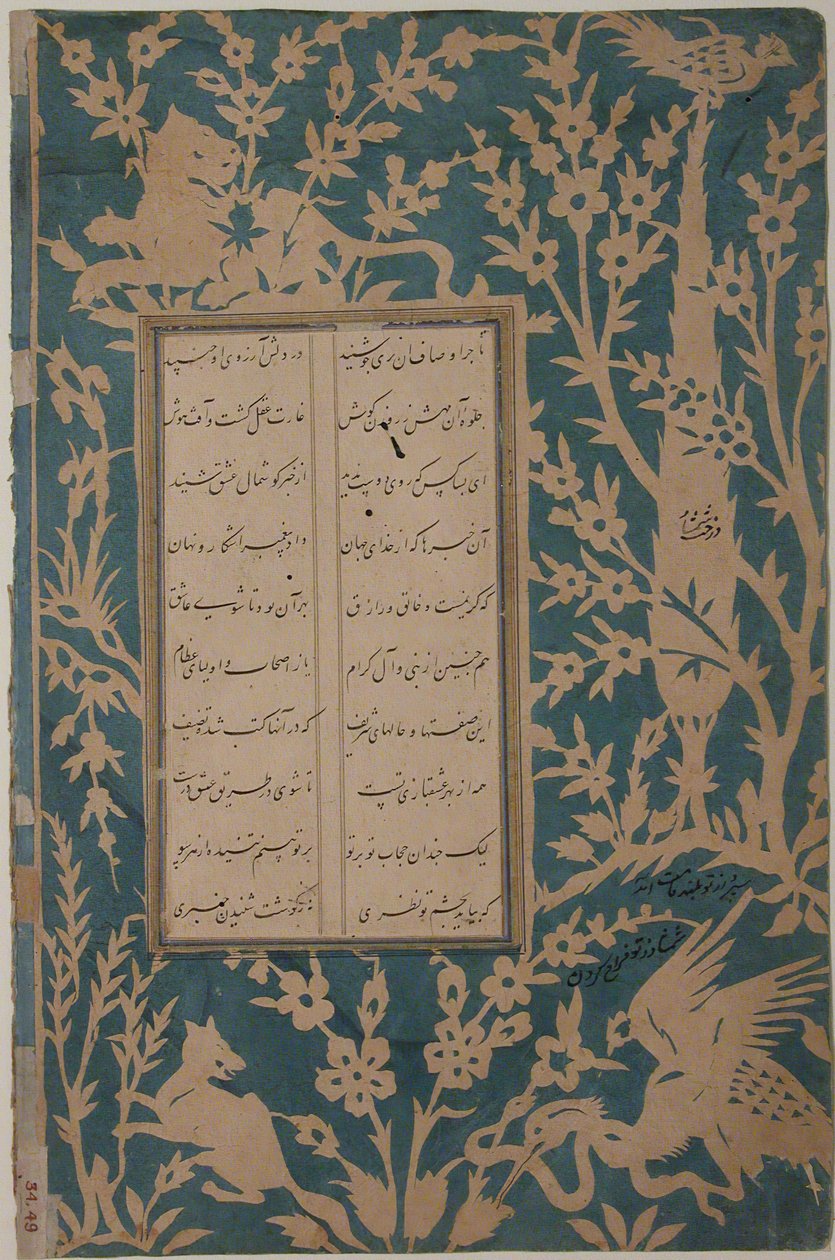 تاجر اوصاف آن پری چو شنید در دلش آرزوی او جنبید
جلوهٔ آن مهش ز روزن گوش غارت عقل گشت و آفت هوش
ای بسا کس که روی دوست ندید از خبر گوشمال عشق کشید
آن خبرها که از خدای جهان داد پیغمبر آشکار و نهان
که کریمست و خالق و رازق بهر آن بود تا شوی عاشق
هم چنین از نبی و آل کرام باز اصحاب و اولیای عظام
این صفتها و حالهای شریف که در آنها کتب شده تصنیف
همه از بهر عشقبازی تست تا شوی در طریق عشق درست
لیک چندان حجاب تو بر تو بر تو بینم تنیده از هر سو
که نیاید بچشم تو نظری نه بگوشت شنیدن خبری
34.49